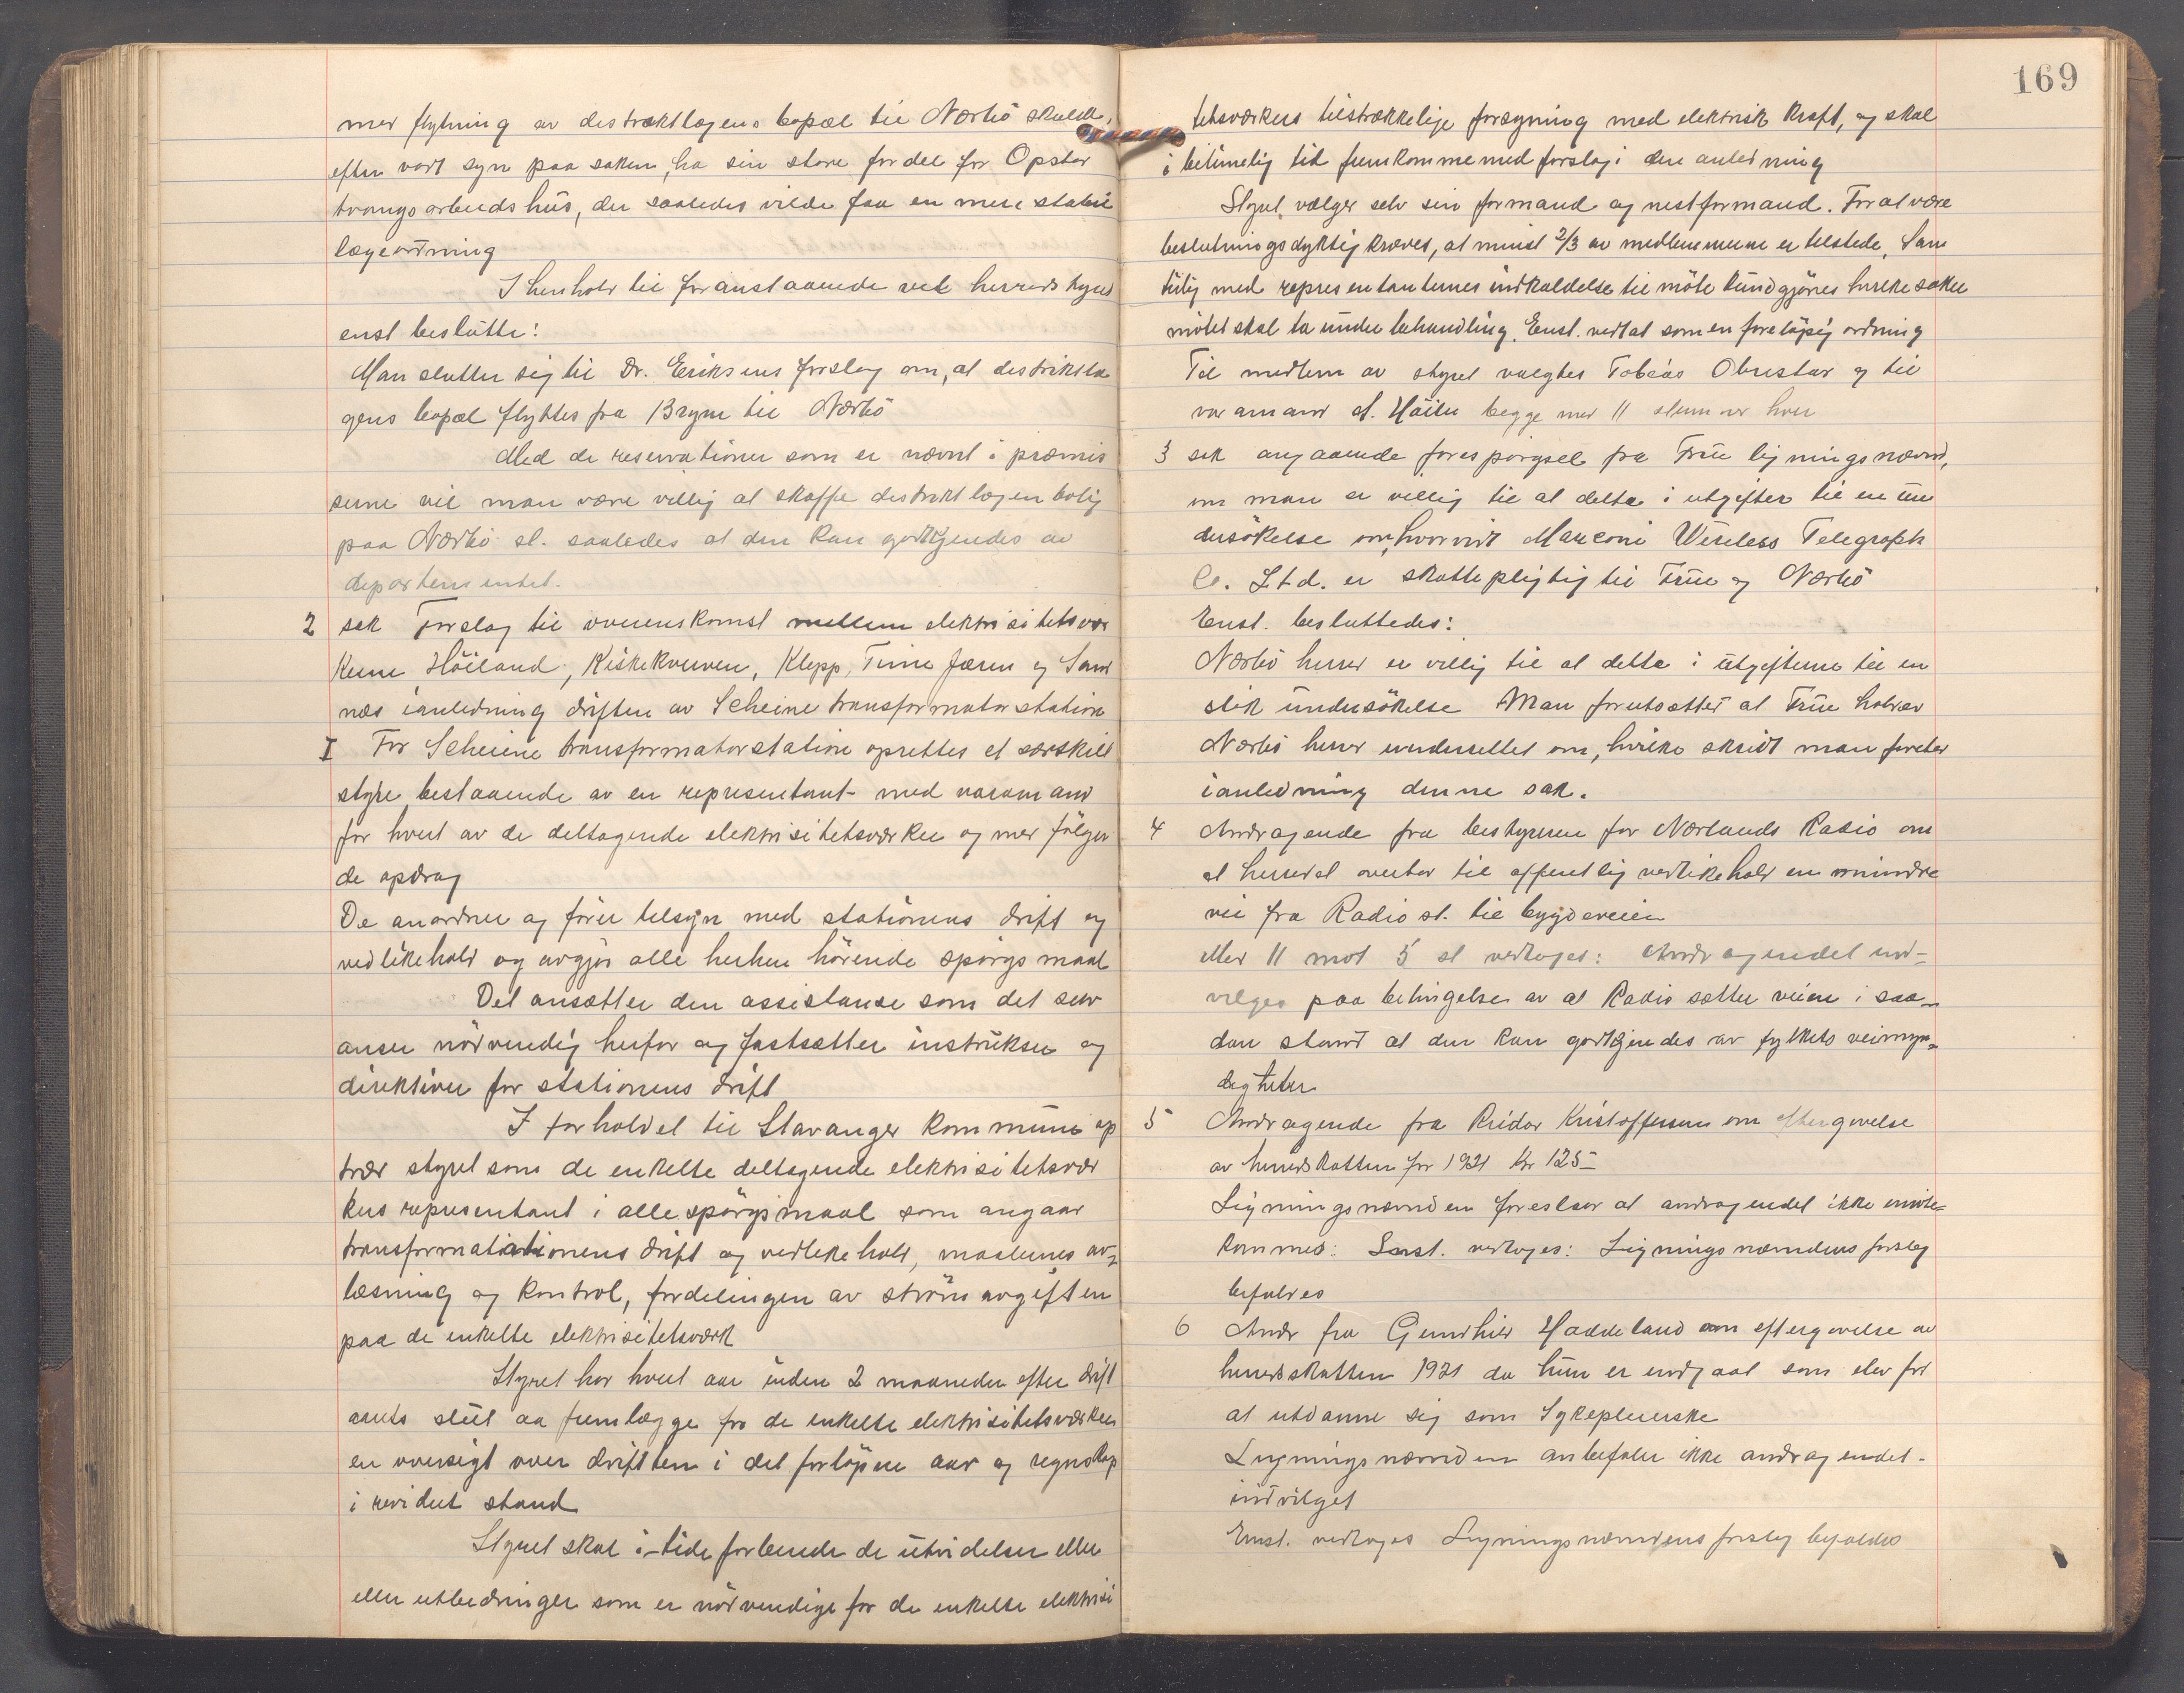 med flytning av destriktlægens bopæl til Nærbö skulde,
efter vort syn paa saken, ha sin store fordel for Opstad
tvangsarbeidshus, der saaledes vilde faa en mere stabil
lægeordning
I henhold til foranstaaende vil herreds styret
enst beslutte:
Man slutter sig til Dr. Eriksens forslag om, at distriktslæ
gens bopæl flyttes fra Bryne til Nærbö
Med de reservationer som er nævnt i præmis
serne vil man være villig at skaffe destriktlægen bolig
paa Nærbö st. saaledes at den kan godkjendes av
departementet.
2 sak Forslag til overenskomst mellem elektrisitetsvær
kerne Höiland, Kiskekverven, Klepp, Time Jæren og Sand
næs ianledning driften av Scheine transformatorstation
I For Scheine transformatorstation oprettes et særskilt
styre bestaaende av en representant med varamand
for hvert av de deltagende elektrisitetsværker og med fölgen
de opdrag
De anordner og förer tilsyn med stationens drift og
vedlikehold og avgjör alle herhen hörende spörgsmaal
Det ansætter den assistanse som det selv
anser nödvendig herfor og fastsætter instrukser og
direktiver for stationens drift
I forholdet til Stavanger kommune op
trær styret som de enkelte deltagende elektrisitetsvær
kers representant i alle spörgsmaal som angaar
transformatationens drift og vedlikehold, maalernes av-
læsning og kontrol, fordelingen av strömavgiften
paa de enkelte elektrisitetsværk
Styret har hvert aar inden 2 maaneder efter drift
aarets slut aa fremlægge fra de enkelte elektrisitetsværker
en oversigt over driften i det forlöpne aar og regnskap
i revidert stand
Styret skal i tide forberede de utvidelser eller
eller utbedringer som er nödvendige for de enkelte elektrisi
169
tetsværkers tilstrækkelige forsyning med elektrisk kraft, og skal
i betimelig tid fremkomme med forslag i den anledning
Styret vælger selv sin formand og nestformand. For at være
beslutningsdyktig kræves, at minst 2/3 av medlemmerne er tilstede, Sam
tidig med representanternes indkaldelse til möte kundgjöres hvilke saker
mötet skal ta under behandling. Enst. vedtat som en forelöpig ordning
Til medlem av styret valgtes Tobias Obrestad og til
varamand A. Höiland begge med 11 stemmer hver
3 sak angaaende forespörgsel fra Time ligningsnævnd,
om man er villig til at delta i utgifter til en un
dersökelse om, hvorvidt Marconi Wireless Telegraph
Co. Ltd. er skattepligtig til Time og Nærbö
Enst. besluttedes:
Nærbö herred er villig til at delta i utgifterne til en
slik undersökelse Man forutsætter at Time holder
Nærbö herred underrettet om, hvilke skridt man foretar
ianledning denne sak.
4 Andragende fra bestyreren for Nærlands Radio om
at herredet overtar til offentlig vedlikehold en mindre
vei fra Radio st. til bygdeveien
Med 11 mot 5 st vedtoges: Andragendet ind-
vilges paa betingelse av at Radio sætter veien i saa-
dan stand at den kan godkjendes av fylkets veimyn-
digheter
5 Andragende fra Reidar Kristoffersen om eftergivelse
av herredskatten for 1921 Kr 125-
Ligningsnævnden foreslaar at andragendet ikke imöte-
kommes: Enst. vedtoges: Ligningsnævndens forslag
befölges
6 Andr fra Gunhild Haddeland om eftergivelse av
herredsskatten 1921 da hun er indgaat som elev for
at utdanne sig som Sykepleierske
Ligningsnævnden anbefaler ikke andragendet
indvilget
Enst. vedtoges Ligningsnævndens forslag befölges